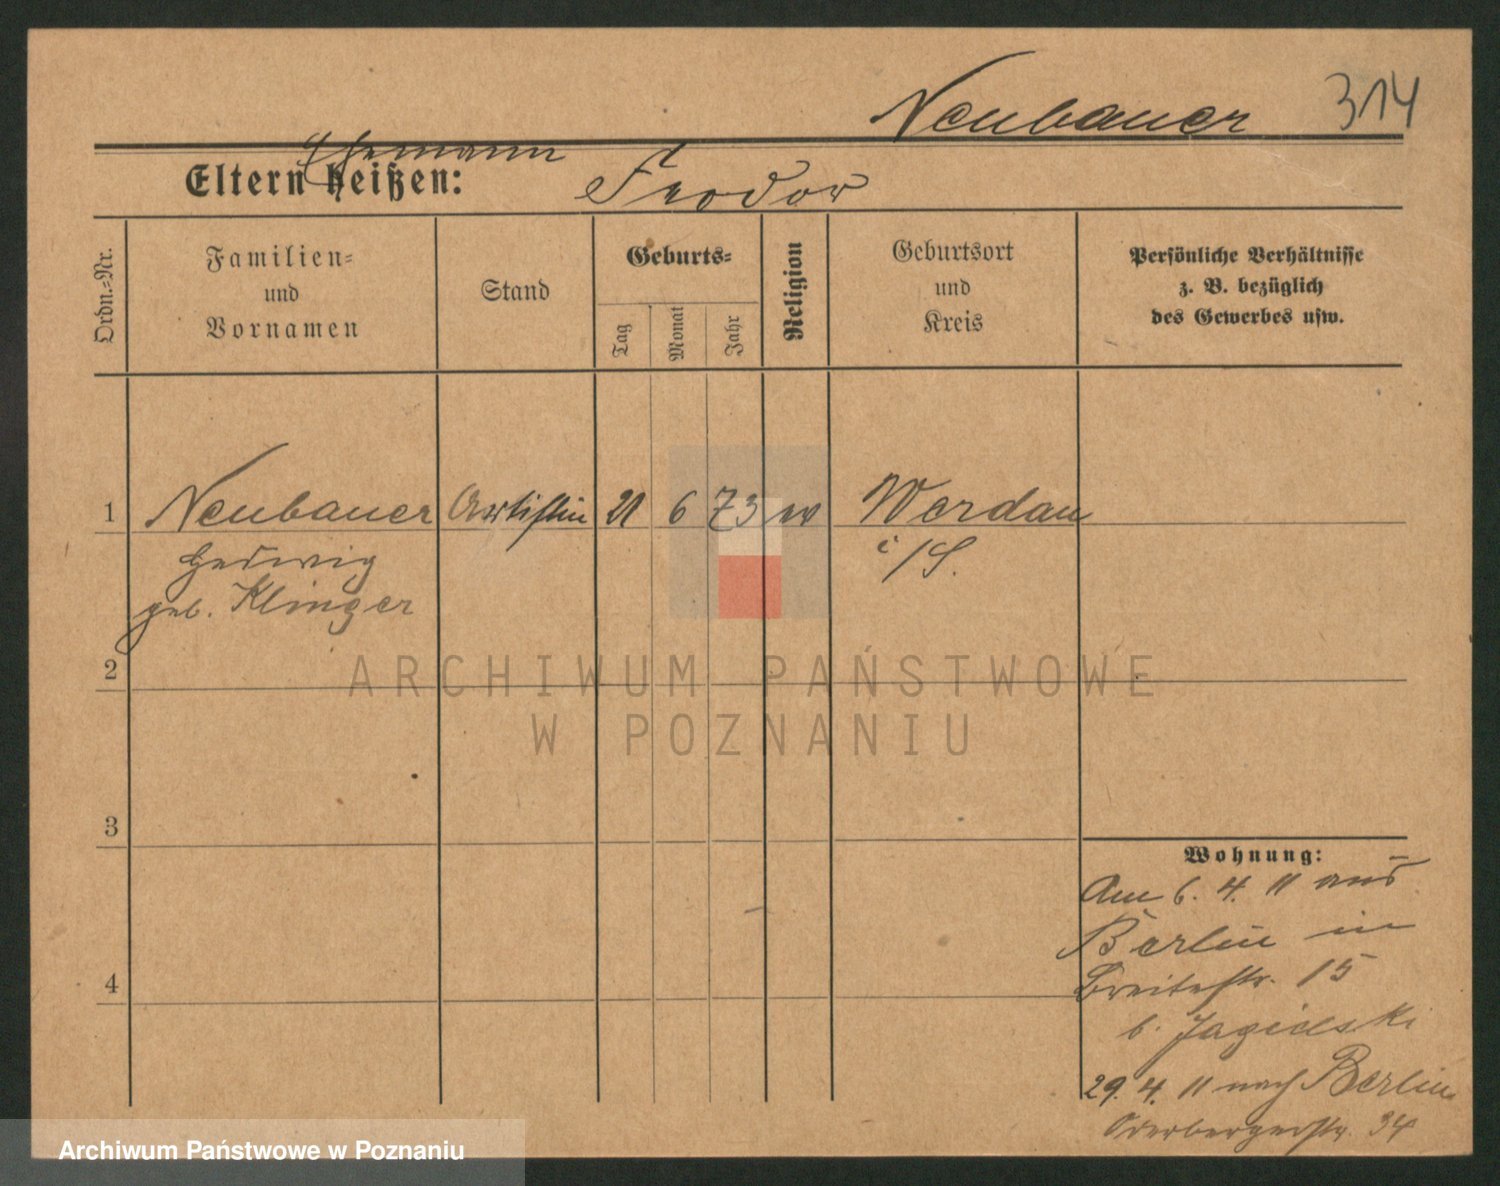 Neubauer 314
Ehemann
Eltern heißen: Feodor
Ordn.-Nr.
Familien-
und
Vornamen
Stand
Geburts-
Tag
Monat
Jahr
Religion
Geburtsort
und
Kreis
Persönliche Verhältnisse
z. B. bezüglich
des Gewerbes usw.
1 Neubauer Artistin 21 6 73 ev Werdau
Hedwig i/S.
geb. Klinger
2
ARCHIWUM PAŃSTWOWE
W POZNANIU
3
Wohnung:
Am 6. 4. 11 aus
Berlin in
Breitestr. 15
b. Jagielski
4
29. 4. 11 nach Berlin
Oderbergerstr. 34
Archiwum Państwowe w Poznaniu